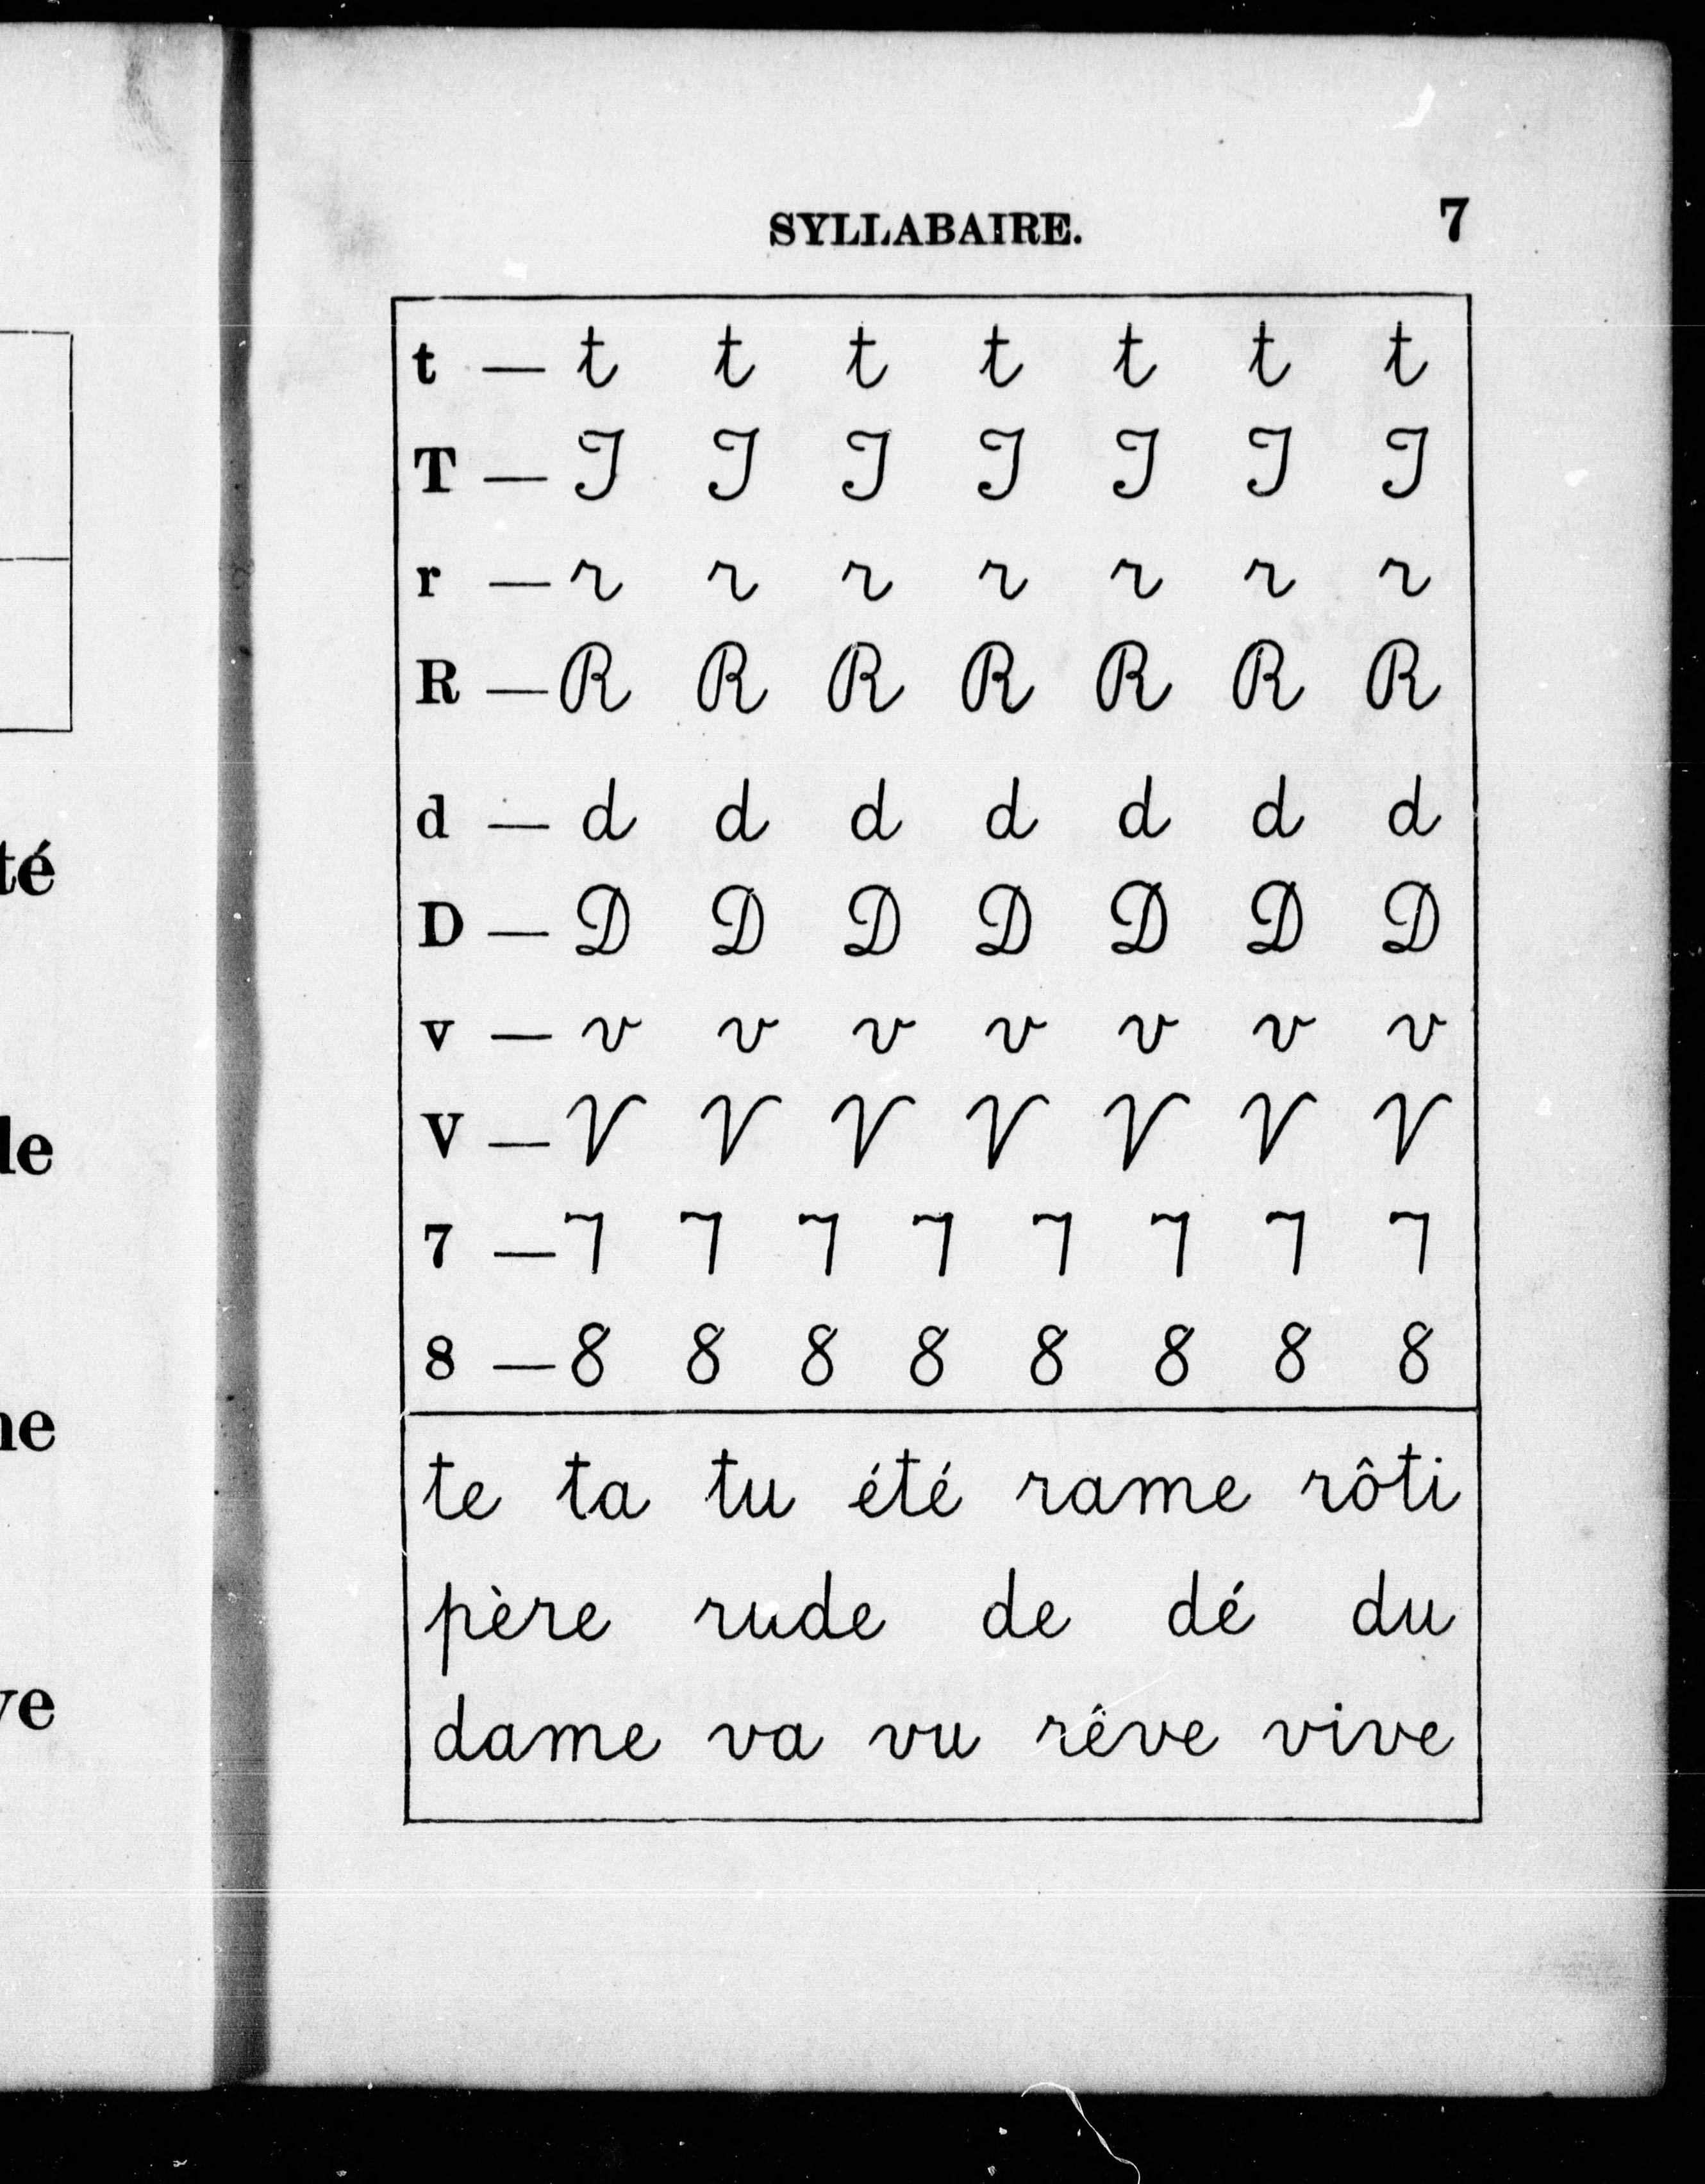 SYLLABAIRE. 7
t — t t t t t t t
T — T T T T T T T
r — r r r r r r r
R — R R R R R R R
d — d d d d d d d
D — D D D D D D D
v — v v v v v v v
V — V V V V V V V
7 — 7 7 7 7 7 7 7 7
8 — 8 8 8 8 8 8 8 8
te ta tu été rame rôti
père rude de dé du
dame va vu rêve vive
té